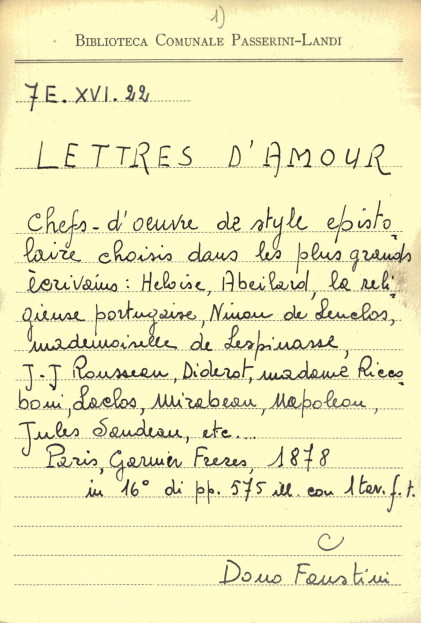 1)
BIBLIOTECA COMUNALE PASSERINI-LANDI
7E. XVI. 22
LETTRES D'AMOUR
Chefs-d'oeuvre de style episto-
laire choisis dans les plus grands
écrivains: Heloise, Abeilard, la reli-
gieuse portugaise, Ninon de Lenclos,
mademoiselle de Lespinasse,
J.-J Rousseau, Diderot, madame Ricco-
boni, Laclos, Mirabeau, Napoleon,
Jules Sandeau, etc....
Paris, Garnier Freres, 1878
in 16° di pp. 575 ill. con 1 tav. f. t.
C
Dono Faustini